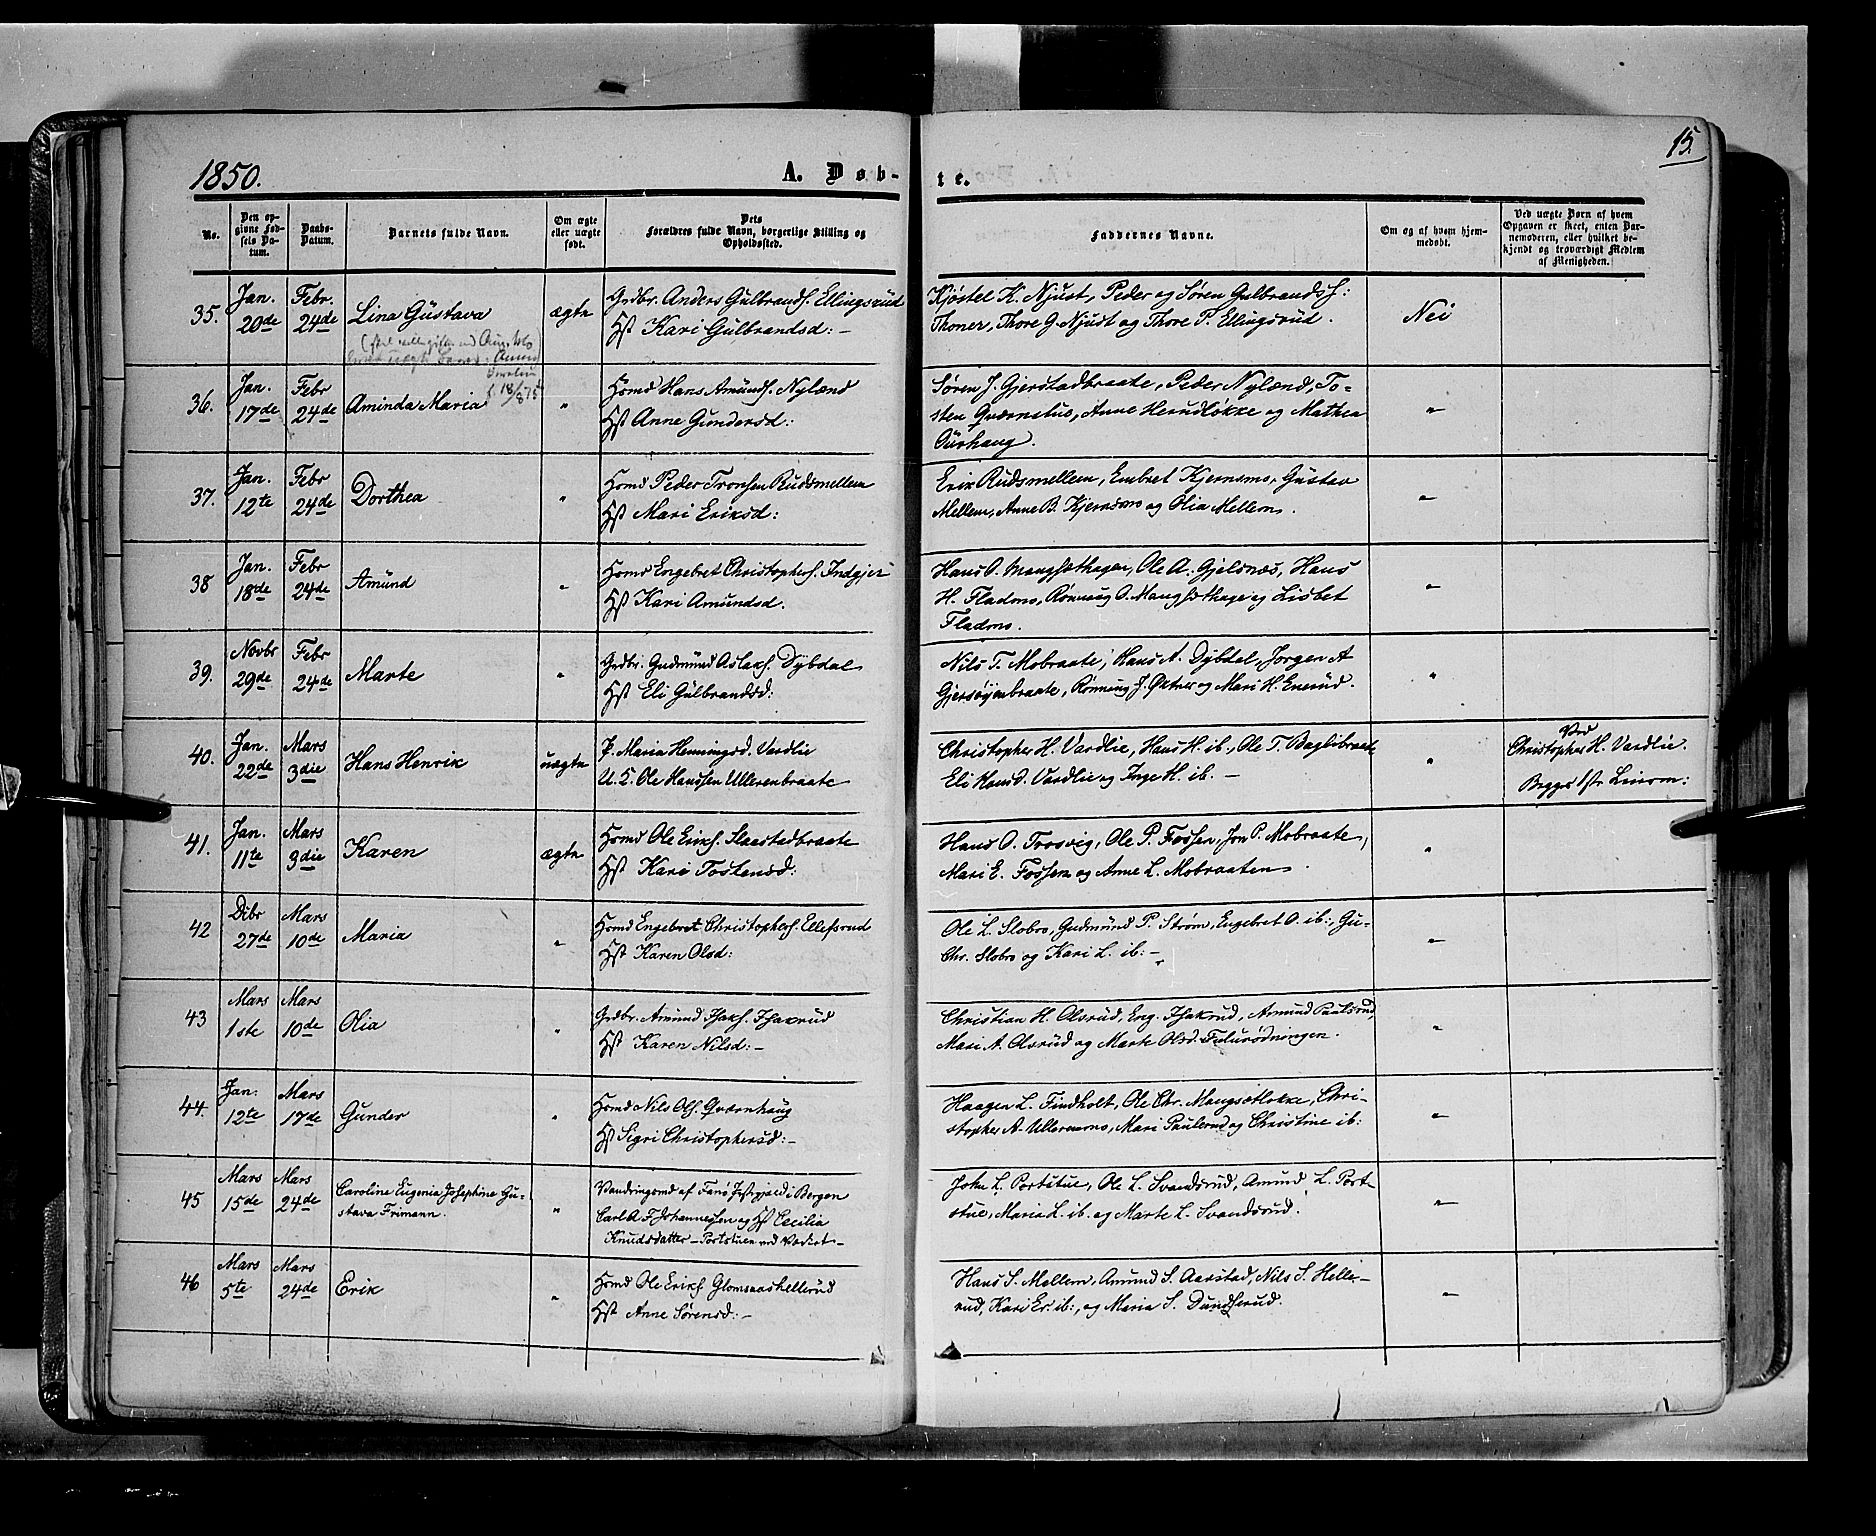 1850.
A. Døb-
te.
15.
No.
Den op-
givne Fød-
sels Da-
tum.
Daabs-
Datum.
Barnets fulde Navn.
Om ægte
eller uægte
født.
Dets
Forældres fulde Navn, borgerlige Stilling og
Opholdssted.
Faddernes Navne.
Om og af hvem hjem-
medøbt.
Ved uægte Børn af hvem
Opgaven er skeet, enten Bar-
nemoderen, eller hvilket be-
kjendt og troværdigt Medlem
af Menigheden.
35.
Jan.
20de
Febr.
24de
Lina Gustava
ægte
Grdbr. Anders Gulbrands. Ellingsrud
Hst Kari Gulbrandsd: –
Kjøstel K. Njust, Peder og Søren Gulbrands.:
Thoner, Thore G. Njust og Thore P. Ellingsrud.
Nei
18/8 75
36.
Jan.
17de
Febr
24de
Aminda Maria
"
Hsmd Hans Amunds. Nylænd
Hst Anne Gundersd:
Søren J. Gjerstadbraate, Peder Nylænd, To-
sten Qværnstu, Anne Herudløkke og Mathea
Ourhaug.
"
37.
Jan.
12te
Febr
24de
Dorthea
"
Hsmd Peder Tronsen Rudsmellem
Hst Mari Eriksd:
Erik Rudsmellem, Embret Kjernsmo, Gustav
Mellem, Anne B. Kjernsmo og Olia Mellem.
"
38
Jan.
18de
Febr
24de
Amund
"
Hsmd Engebret Christophers. Indgjer
Hst Kari Amundsd.
Hans O. Mangsethagen, Ole A. Gjelsnæs, Hans
H. Fladmo, Rønnaug O. Mangsethage og Lisbet
Fladmo.
"
39.
Novbr
29de
Febr
24de
Marte
"
Grdbr. Gudmund Aslaks. Dybdal
Hst Eli Gulbrandsd:
Nils T. Mobraate, Hans A. Dybdel, Jørgen A
Gjersøyenbraate, Rønnaug J. Øktner og Mari H. Enerud.
"
40.
Jan.
22de
Mars
3die
Hans Henrik
uægte
P. Maria Henningsd. Vardlie
U. K. Ole Hanssen Ullerenbraate
Christopher H. Vardlie, Hans H. ib., Ole T. Baglibraate
Eli Hansd. Vardlie og Inge H. ib. –
"
Ved
Christopher H. Vardlie.
Begges 1ste Leierm:
41.
Jan.
11te
Mars
3die
Karen
ægte
Hsmd Ole Eriks. Slaastadbraate
Hst Kari Tostensd:
Hans O. Trosvig, Ole P. Fossen, Jon P. Mobraate,
Mari E. Fossen og Anne L. Mobraaten.
"
42
Dbr
27de
Mars
10de
Maria
"
Hsmd Engebret Christophers. Ellefsrud
Hst Karen Olsd:
Ole L. Slobro, Gudmund P. Strøm, Engebret O. ib:, Gu-
Chr. Slobro og Kari L. ib: –
"
43
Mars
1ste
Mars
10de
Olia
"
Grdbr. Amund Isaks. Isakrud
Hst Karen Nilsd: –
Christian H. Olsrud, Eng. Isakrud, Amund Paulsrud,
Mari A. Olsrud og Marte Olsd. Fulurødningen.
"
44.
Jan.
12te
Mars
17de
Gunder
"
Hsmd Nils Ols. Qværnhaug
Hst Sigri Christophersd: –
Haagen L. Findholt, Ole Chr. Mangsetløkke, Chri-
stopher A. Ullernmo, Mari Paulerud og Christine ib:
"
45
Mars
15de
Mars
24de
Caroline Eugenia Josephine Gu-
stava Frimann.
"
Vandringsmd af Fanø Præstegjæld i Bergen
Carl A. F. Johannessen og Hst Cecilia
Knudsdatter – Portstuen ved
John L. Portstue, Ole L. Svandsrud, Amund L. Port-
stue, Maria L. ib. og Marte L. Svandsrud.
"
46
Mars
5te
Mars
24de
Erik
"
Hsmd Ole Eriks. Glomsaashellerud
Hst Anne Sørensd: –
Hans S. Mellem, Amund S. Aarstad, Nils S. Helle-
rud, Kari Er. ib:, og Maria S. Dundserud.
"